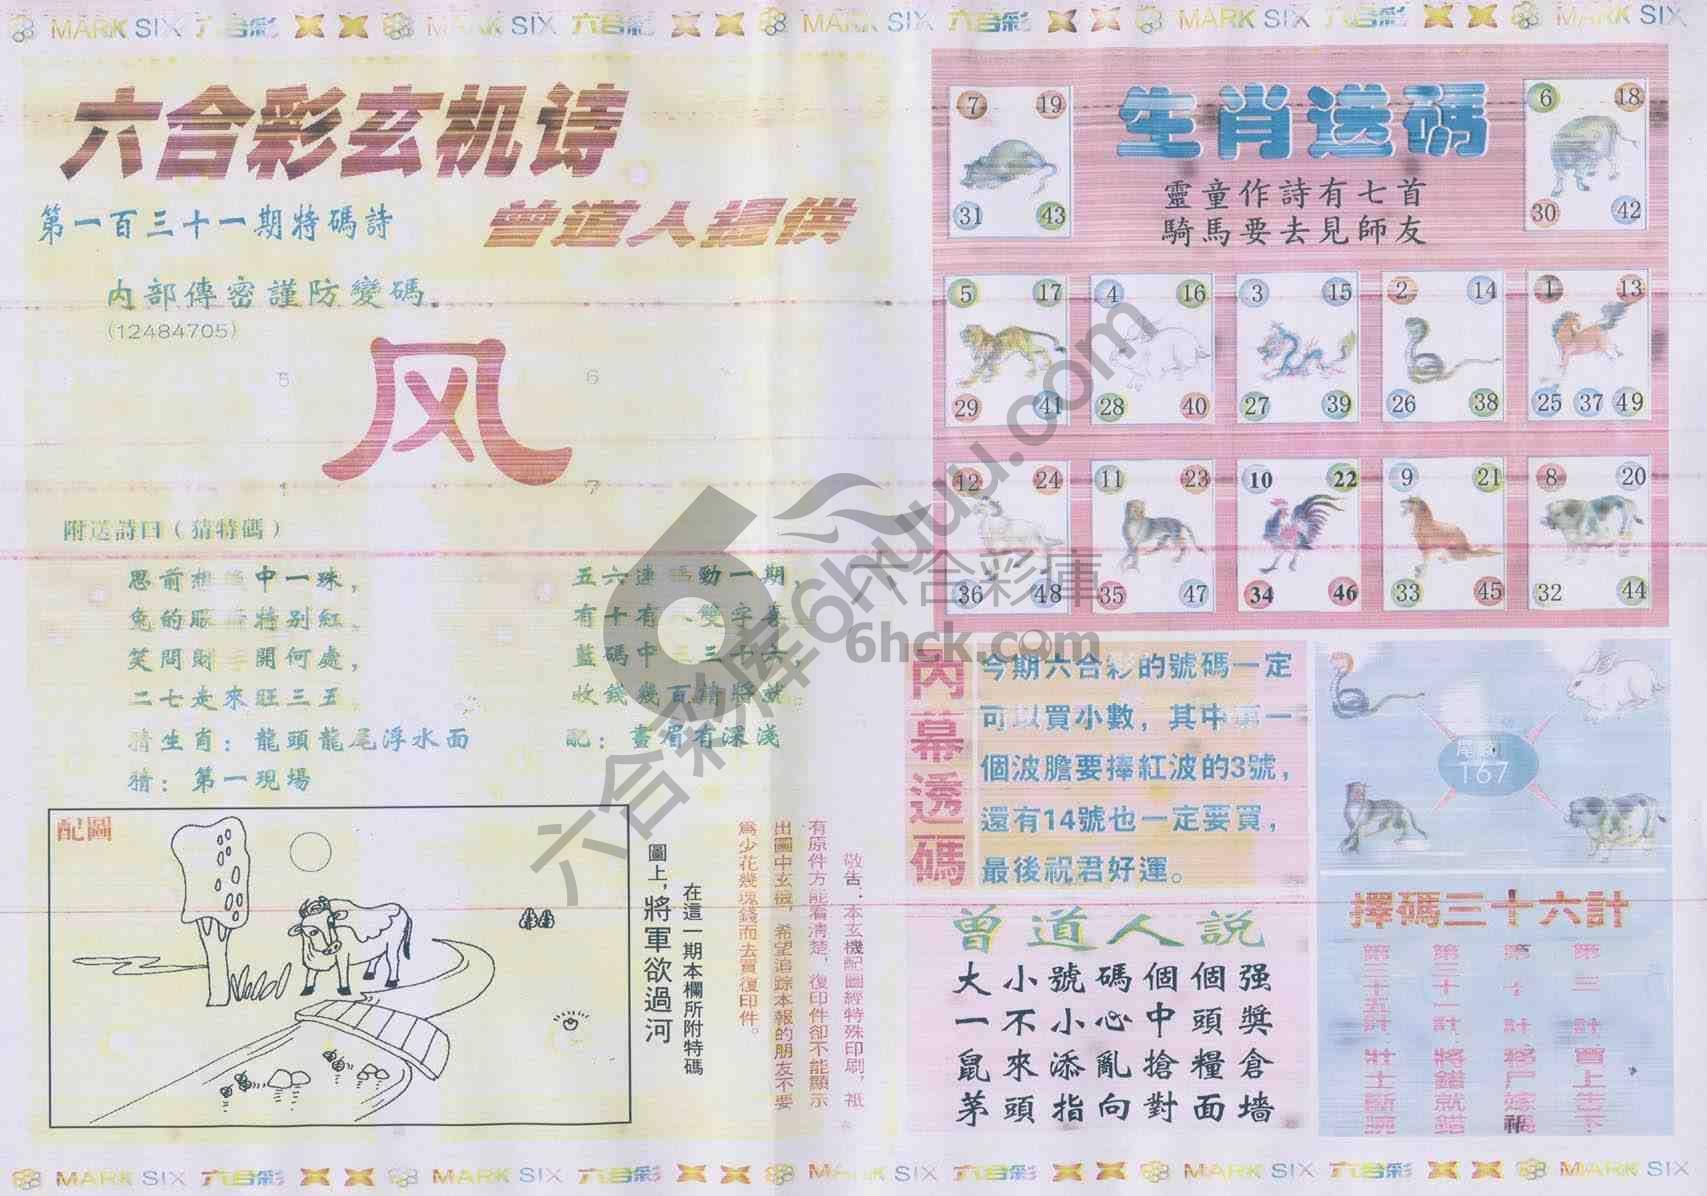 MARK SIX 六合彩 MARK SIX 六合彩 MARK SIX 六合彩 MARK SIX 六合彩 MARK SIX
六合彩玄机诗
第一百三十一期特碼詩
曾道人提供
内部傳密謹防變碼
(12484705)
风
5
6
1
7
附送詩口（猜特碼）
思前想 中一珠，
兔的眼 特别紅。
笑問財 開何處，
二七走來旺三五。
猜生肖：龍頭龍尾浮水面
猜：第一現場
五六連 勁一期，
有十有 雙字喜
藍碼中 三十六
收錢幾百請將就
配：畫眉有深淺
配圖
在這一期本欄所附特碼
圖上，將軍欲過河
敬告：本玄機配圖經特殊印刷，祇
有原件方能看清楚，復印件卻不能顯示
出圖中玄機，希望追踪本報的朋友不要
爲少花幾塊錢而去買復印件。
生肖送碼
靈童作詩有七首
騎馬要去見師友
7 19
31 43
6 18
30 42
5 17
29 41
4 16
28 40
3 15
27 39
2 14
26 38
1 13
25 37 49
12 24
36 48
11 23
35 47
10 22
34 46
9 21
33 45
8 20
32 44
内幕透碼
今期六合彩的號碼一定
可以買小數，其中第一
個波膽要捧紅波的3號，
還有14號也一定要買，
最後祝君好運。
167
曾道人説
大小號碼個個强
一不小心中頭獎
鼠來添亂搶糧倉
茅頭指向對面墻
擇碼三十六計
第三十五計：壯士斷腕
第二十一計：將錯就錯
計：移尸嫁禍
第三計：買上告下
六合彩庫
6hck.com
六合彩库6huuu.com
MARK SIX 六合彩 MARK SIX 六合彩 MARK SIX 六合彩 MARK SIX 六合彩 MARK SIX